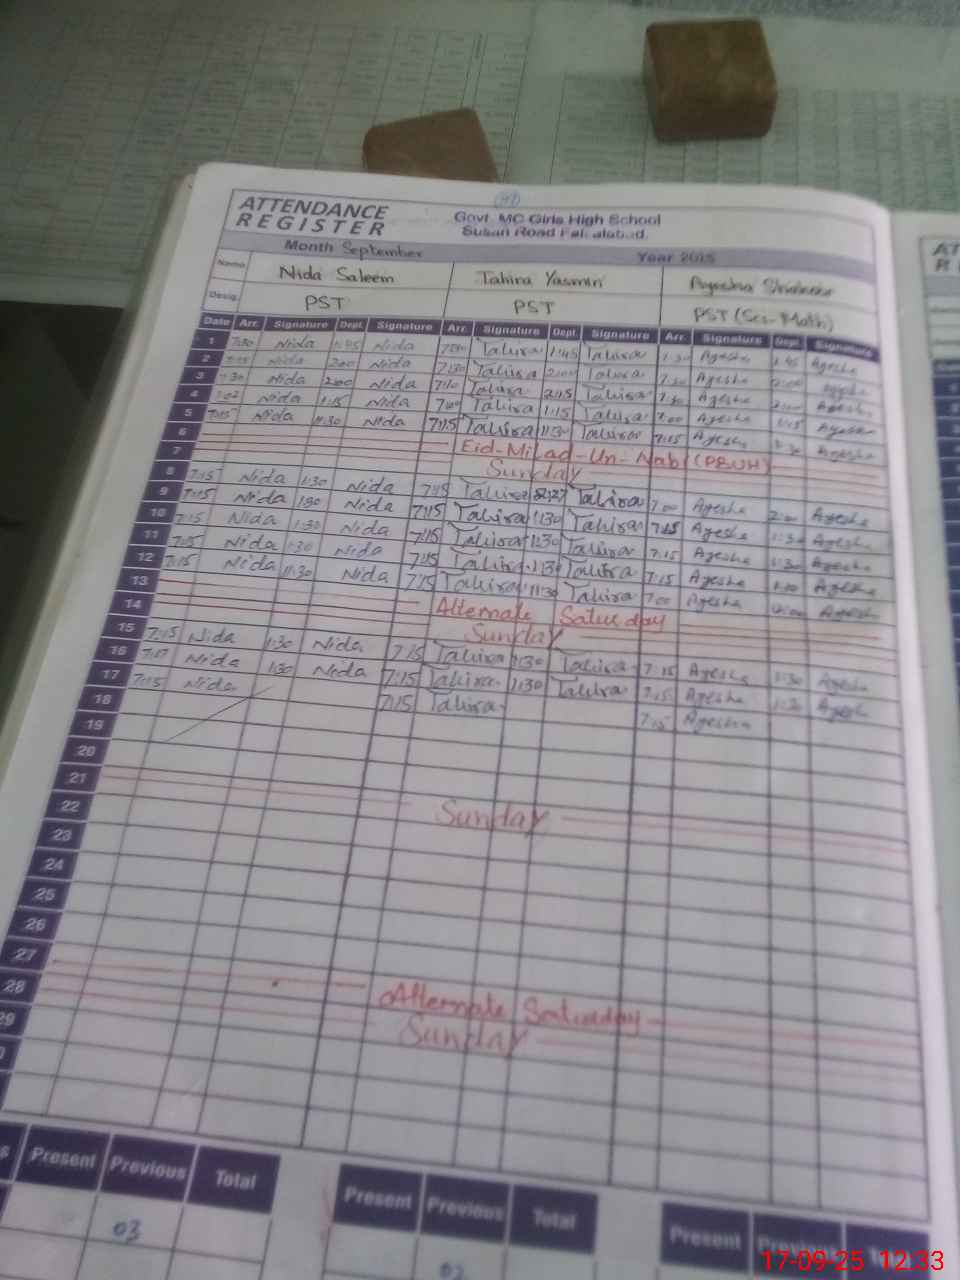 ATTENDANCE
REGISTER
Govt. MC Girls High School
Susan Road Faisalabad.
Month September Year 2025
Name Nida Saleem Tahira Yasmin Ayesha
Desig. PST PST PST (Sci-Math)
Date Arr. Signature Dept. Signature Arr. Signature Dept. Signature Arr. Signature Dept. Signature
1 7:30 Nida 1:45 Nida Tahira 1:45 Tahira Ayesha 1:45 Ayesha
2 Nida 2:00 Nida 7:30 Tahira 2:00 Tahira 7:30 Ayesha 2:00 Ayesha
3 Nida 2:00 Nida 7:10 Tahira 2:15 Tahira Ayesha 2:00 Ayesha
4 Nida 1:15 Nida 7:00 Tahira 1:15 Tahira 7:00 Ayesha 1:15 Ayesha
5 7:15 Nida 11:30 Nida 7:15 Tahira 11:30 Tahira 7:15 Ayesha Ayesha
6 Eid-Milad-Un-Nabi (PBUH)
7 Sunday
8 7:15 Nida 1:30 Nida 7:15 Tahira Tahira 7:00 Ayesha 2:00 Ayesha
9 7:15 Nida 1:30 Nida 7:15 Tahira 1:30 Tahira 7:15 Ayesha 1:30 Ayesha
10 7:15 Nida 1:30 Nida 7:15 Tahira 1:30 Tahira 7:15 Ayesha 1:30 Ayesha
11 7:15 Nida 1:30 Nida 7:15 Tahira 1:30 Tahira 7:15 Ayesha Ayesha
12 7:15 Nida 11:30 Nida 7:15 Tahira 11:30 Tahira 7:00 Ayesha 12:00 Ayesha
13 Alternate Saturday
14 Sunday
15 7:15 Nida 1:30 Nida 7:15 Tahira 1:30 Tahira 7:15 Ayesha 1:30 Ayesha
16 Nida 1:30 Nida 7:15 Tahira 1:30 Tahira 7:15 Ayesha 1:30 Ayesha
17 7:15 Nida 7:15 Tahira 7:15 Ayesha
18
19
20
21 Sunday
22
23
24
25
26
27 Alternate Saturday
28 Sunday
29
Present Previous Total Present Previous Total Present Previous
03 02
17-09-25 12:33